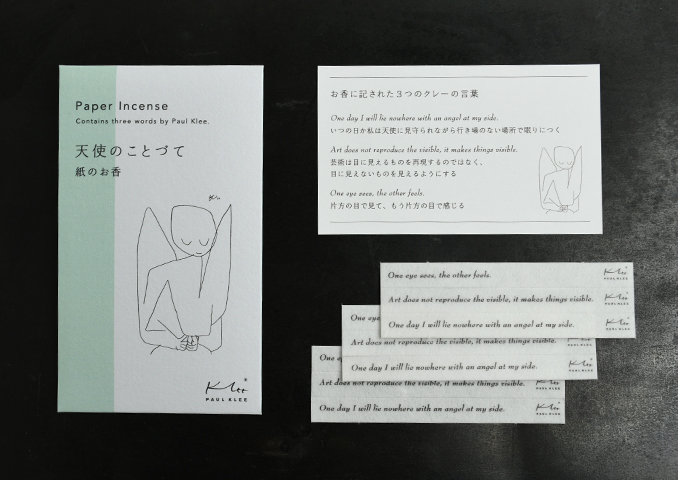 Paper Incense
Contains three words by Paul Klee.
天使のことづて
紙のお香
Klee
PAUL KLEE
お香に記された3つのクレーの言葉
One day I will lie nowhere with an angel at my side.
いつの日か私は天使に見守られながら行き場のない場所で眠りにつく
Art does not reproduce the visible, it makes things visible.
芸術は目に見えるものを再現するのではなく、
目に見えないものを見えるようにする
One eye sees, the other feels.
片方の目で見て、もう片方の目で感じる
One eye sees, the other feels.
Klee
PAUL KLEE
Art does not reproduce the visible, it makes things visible.
Klee
PAUL KLEE
One day I will lie nowhere with an angel at my side.
Klee
PAUL KLEE
One eye
Art does not reproduce the visible, it makes things visible.
One day I will lie nowhere with an angel at my side.
Klee
PAUL KLEE
One eye
Art does not reproduce the visible, it makes things visible.
PAUL KLEE
One day I will lie nowhere with an angel at my side.
Klee
PAUL KLEE